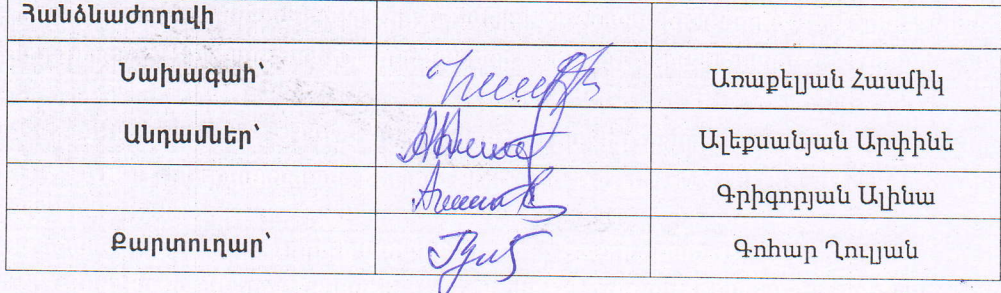 Հանձնաժողովի
Նախագահ՝ Առաքելյան Հասմիկ
Անդամներ՝ Ալեքսանյան Արփինե
Գրիգորյան Ալինա
Քարտուղար՝ Գոհար Ղուլյան